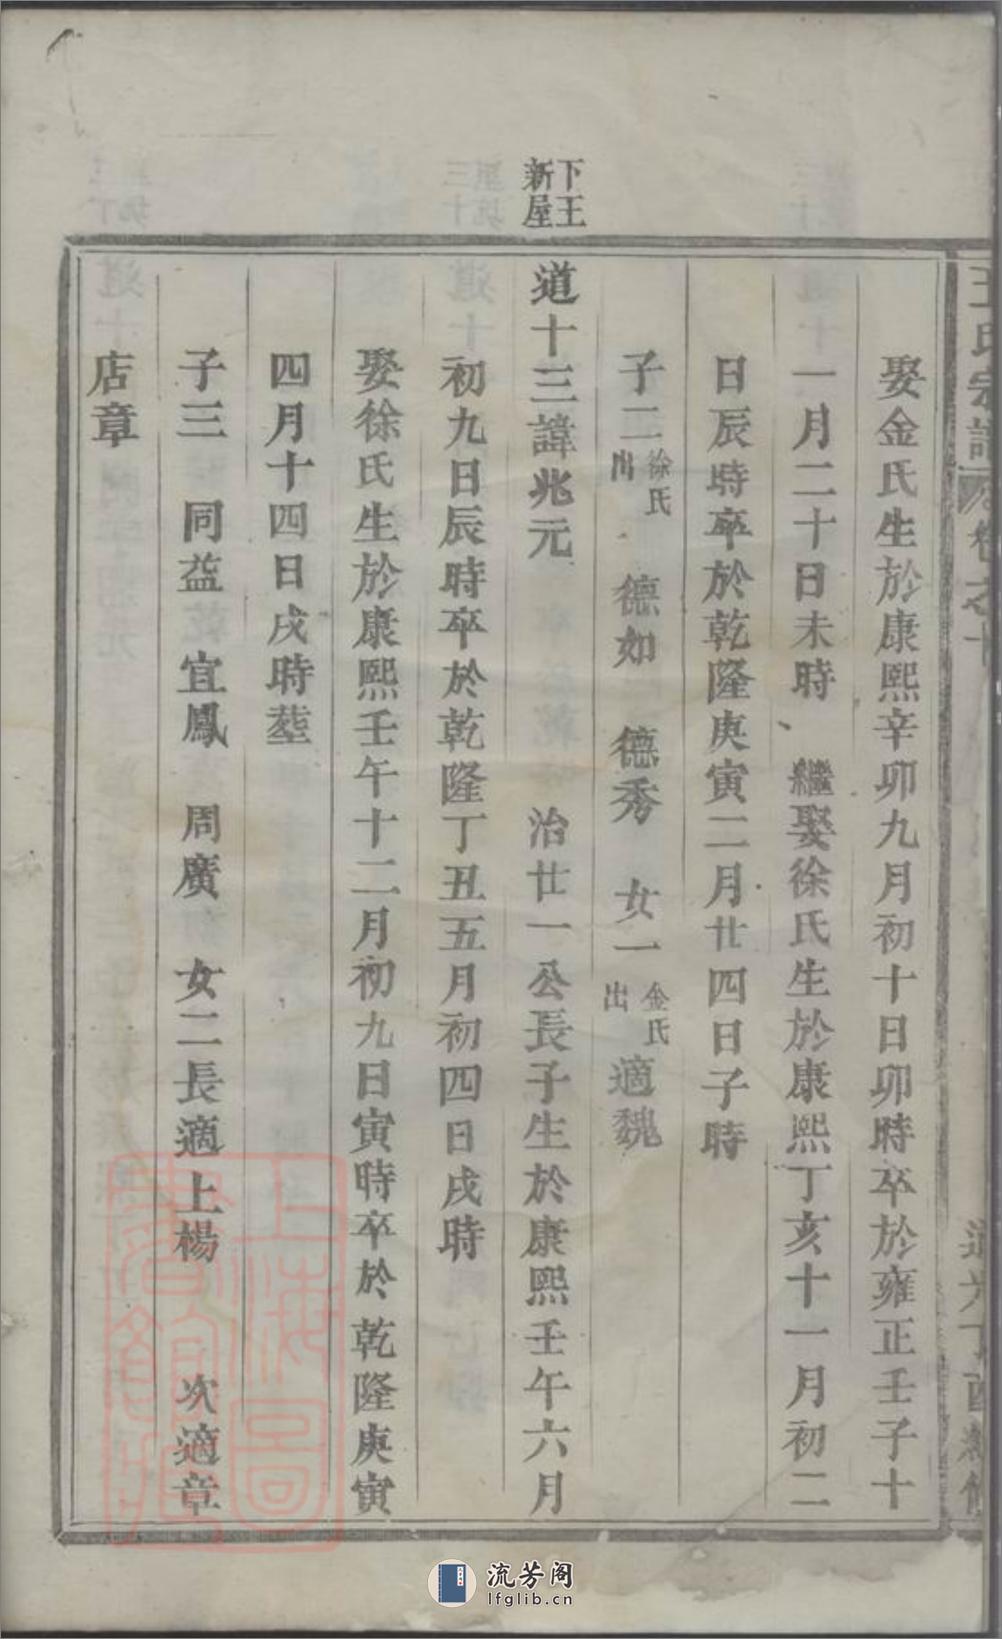 王氏宗譜 卷之十 道光丁酉新修
娶金氏生於康熙辛卯九月初十日卯時卒於雍正壬子十
一月二十日未時、繼娶徐氏生於康熙丁亥十一月初二
日辰時卒於乾隆庚寅二月廿四日子時
子二徐氏出 德如 德秀 女一金氏出適魏
下王新屋
道十三諱兆元 治廿一公長子生於康熙壬午六月
初九日辰時卒於乾隆丁丑五月初四日戌時
娶徐氏生於康熙壬午十二月初九日寅時卒於乾隆庚寅
四月十四日戌時塟
子三 同益 宜鳳 周廣 女二長適上楊 次適章
店章
上海圖書館藏
流芳阁
lfglib.cn